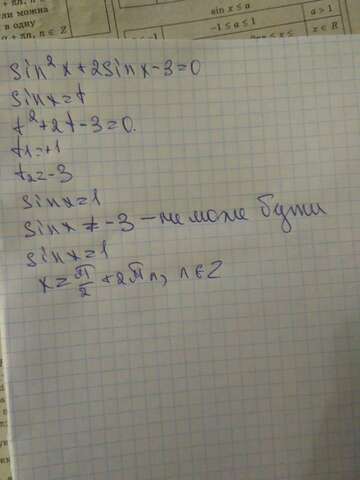 ли можна
в одну
+ πn, n ∈ Z
sin x ≤ a
a > 1
−1 ≤ a ≤ 1
x ∈ R
sin²x+2sinx-3=0
sinx=t
t²+2t-3=0.
t1=+1
t2=-3
sinx=1
sinx≠-3 - не може бути
sinx=1
x=π/2+2πn, n∈Z